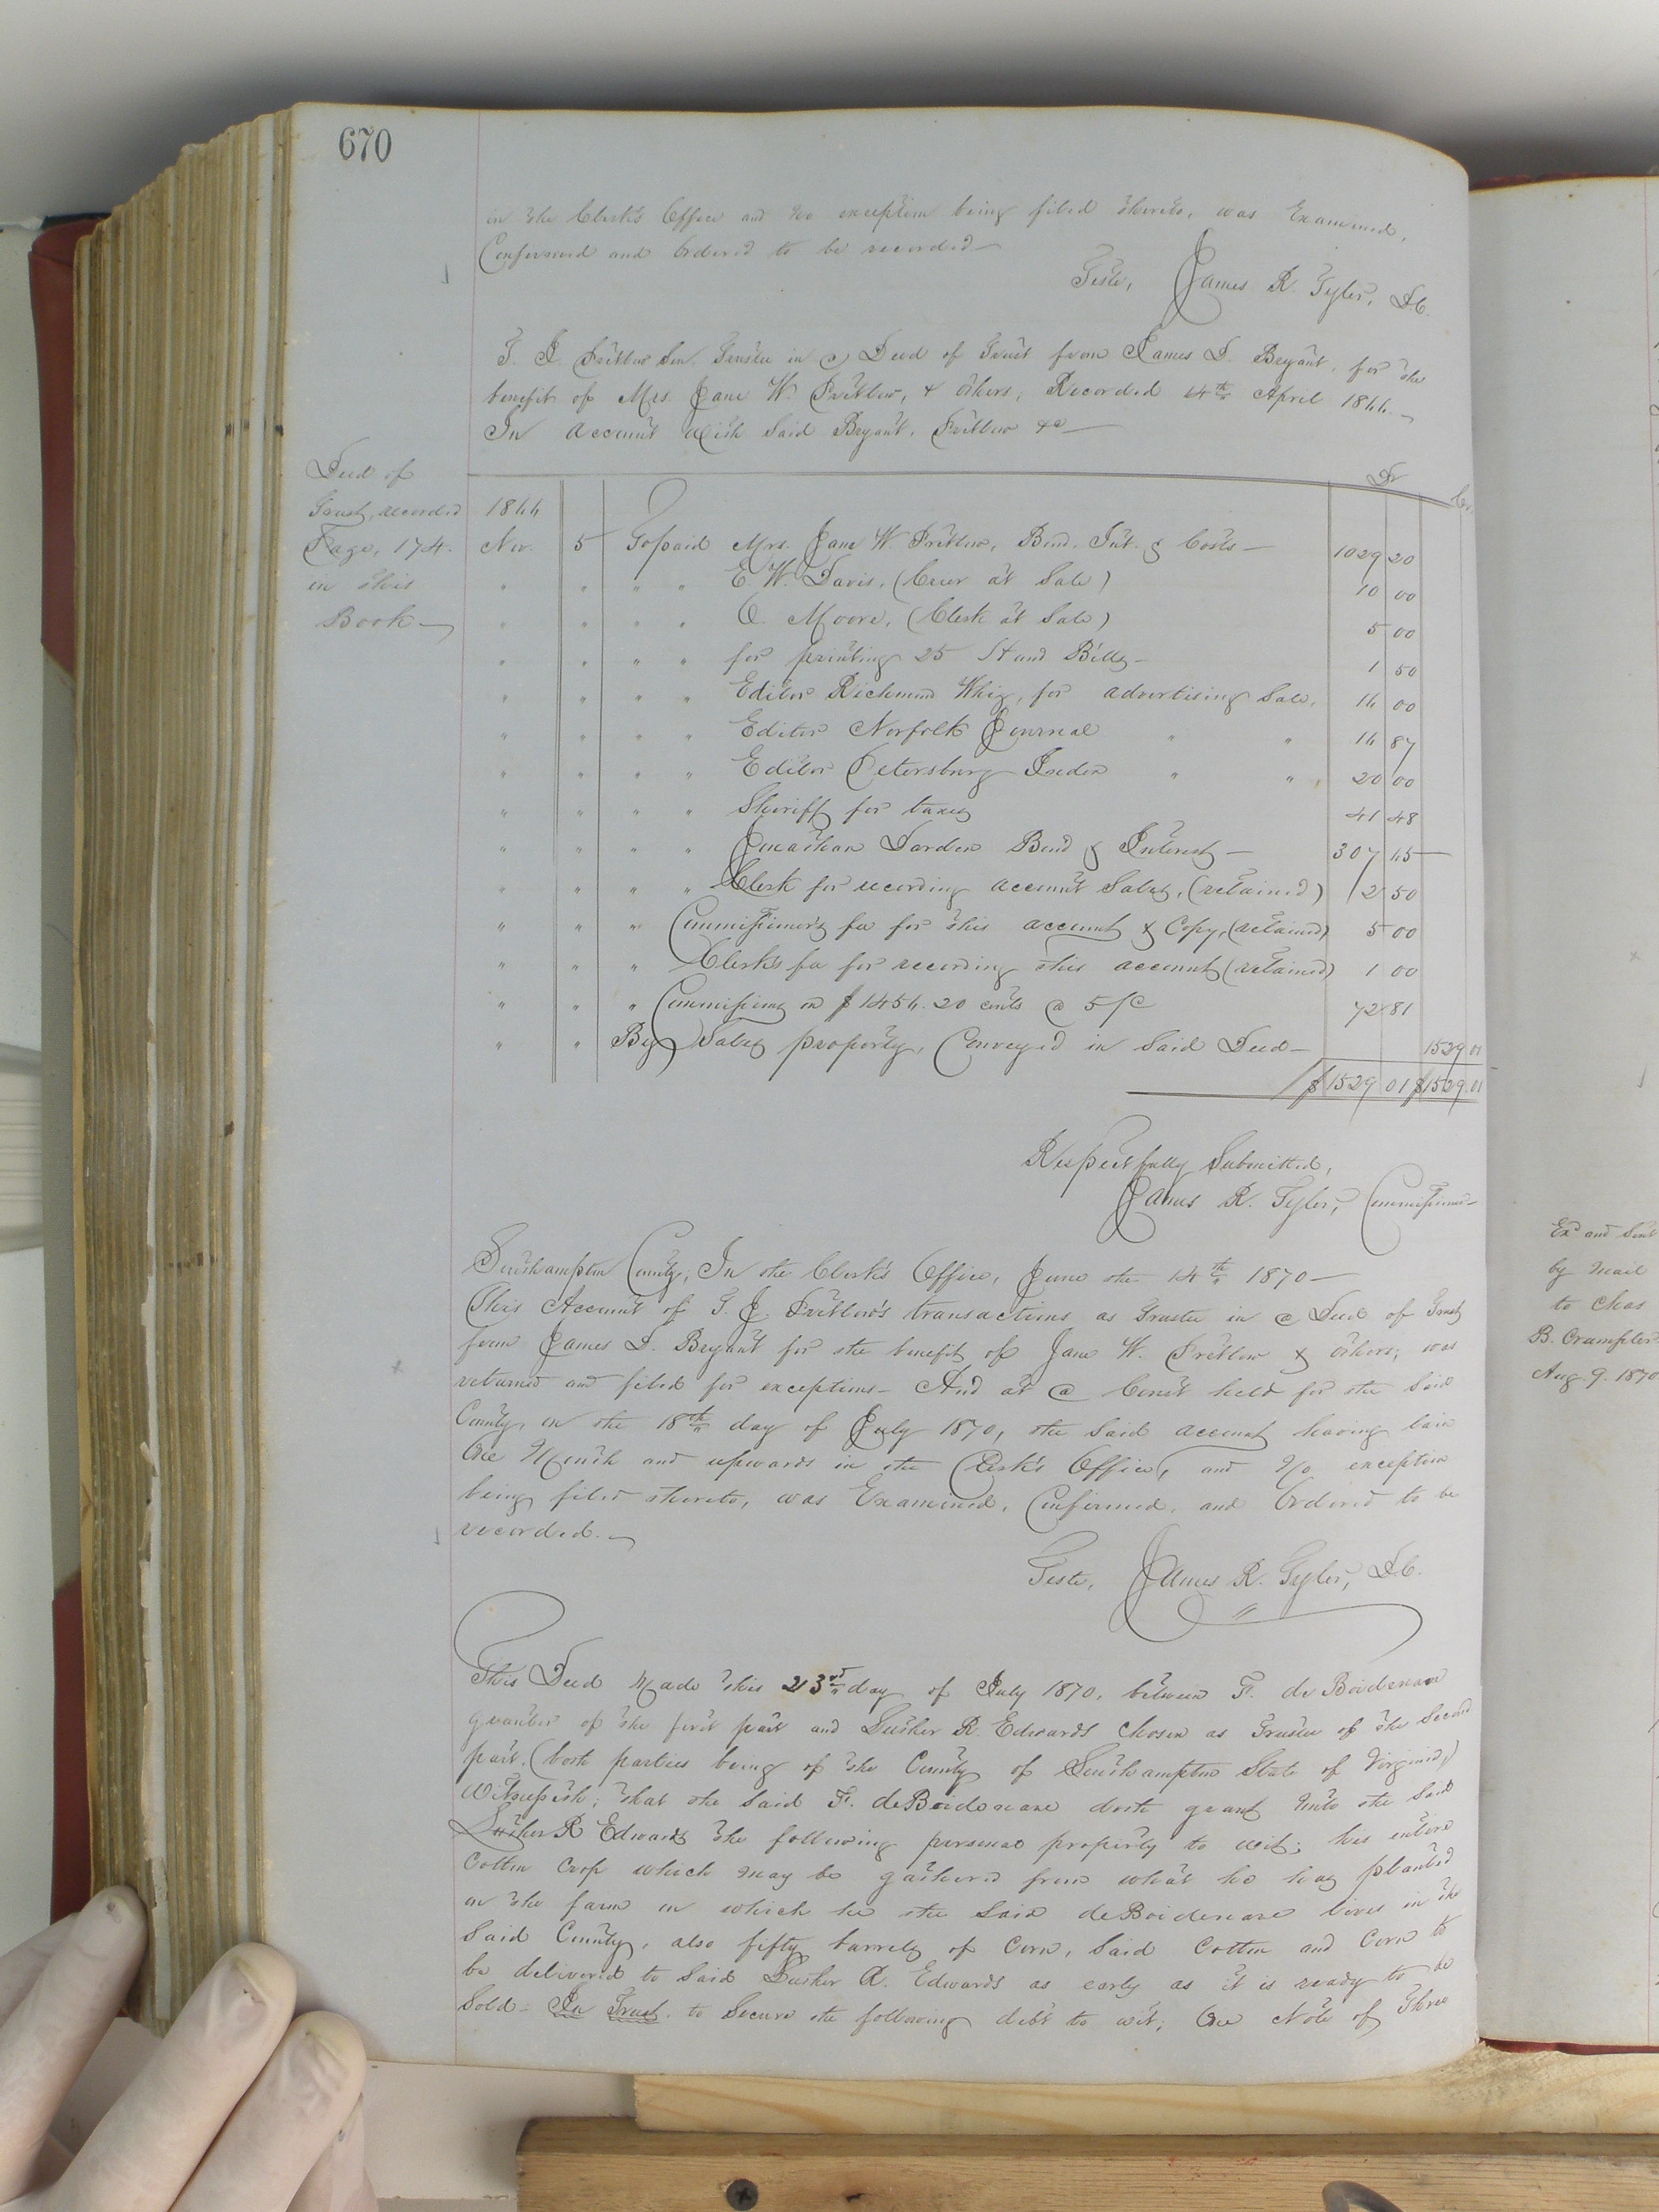 670
in the Clerk's Office and no exception being filed thereto, was Examined,
Confirmed and Ordered to be recorded—
Teste, James R. Tyler, D.C.
T. J. Pretlow Sen. Trustee in a Deed of Trust from James D. Bryant, for the
benefit of Mrs. Jane W. Pretlow, & others, Recorded 4th April 1866.—
In account with Said Bryant, Pretlow &c—
Deed of
Trust, recorded
Page, 174.
in this
Book—
Dr Cr.
1866
Nov. 5 To paid Mrs. Jane W. Pretlow, Bond. Int. & Costs— 1029 20
" " " " E. W. Davis, (Crier at Sale) 10 00
" " " " O. Moore, (Clerk at Sale) 5 00
" " " " for printing 25 Hand Bills— 1 50
" " " " Editor Richmond Whig, for advertising Sale, 16 00
" " " " Editor Norfolk Journal " " 16 87
" " " " Editor Petersburg Index " " 20 00
" " " " Sheriff for taxes 41 48
" " " " Jonathan Darden Bond & Interest— 307 65
" " " " Clerk for recording account Sales, (retained) 2 50
" " " Commissioner's fee for this account & Copy, (retained) 5 00
" " " Clerk's fee for recording this account (retained) 1 00
" " " Commissions on $1456.20 cents @ 5 /c 72 81
" " By Sales property, Conveyed in Said Deed— 1529 01
$1529 01 $1529.01
Respectfully Submitted,
James R. Tyler, Commissioner—
Southampton County, In the Clerk's Office, June the 14th 1870—
This Account of T. J. Pretlow's transactions as Trustee in a Deed of Trust
from James D. Bryant for the benefit of Jane W. Pretlow & others, was
returned and filed for exceptions— And at a Court held for the Said
County, on the 18th day of July 1870, the Said account having lain
One Month and upwards in the Clerk's Office, and No exception
being filed thereto, was Examined, Confirmed, and Ordered to be
recorded.—
Teste, James R. Tyler, D.C.
This Deed Made this 23rd day of July 1870, between F. de Boidenave
grantor of the first part and Lusher R Edwards chosen as Trustee of the Second
part. (both parties being of the County of Southampton State of Virginia,)
Witnesseth; that the Said F. deBoidenave doth grant unto the Said
Lusher R Edwards the following personal property to wit; his entire
Cotton Crop which may be gathered from what he has planted
on the farm on which he the Said deBoidenave lives in the
Said County, also fifty barrels of Corn, Said Cotton and Corn to
be delivered to Said Lusher R. Edwards as early as it is ready to be
Sold— In Trust. to Secure the following debt to wit; One Note of Three
Exd and Sent
by mail
to Chas
B. Crumpler
Aug. 9. 1870